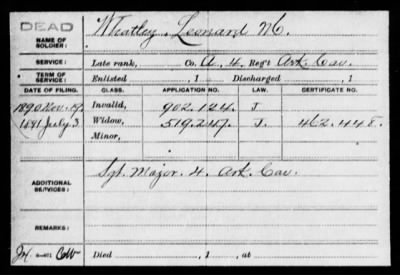 DEAD
NAME OF SOLDIER: Whatley, Leonard M.
SERVICE: Late rank, Co. A, 4 Reg't Ark. Cav.
TERM OF SERVICE: Enlisted , 1 Discharged , 1
DATE OF FILING. CLASS. APPLICATION NO. LAW. CERTIFICATE NO.
1890 Nov. 19. Invalid, 902.124. J
1891 July 3 Widow, 519.247. J. 462.448.
Minor,
ADDITIONAL SERVICES: Sgt. Major. 4. Ark. Cav.
REMARKS:
Died , 1 , at